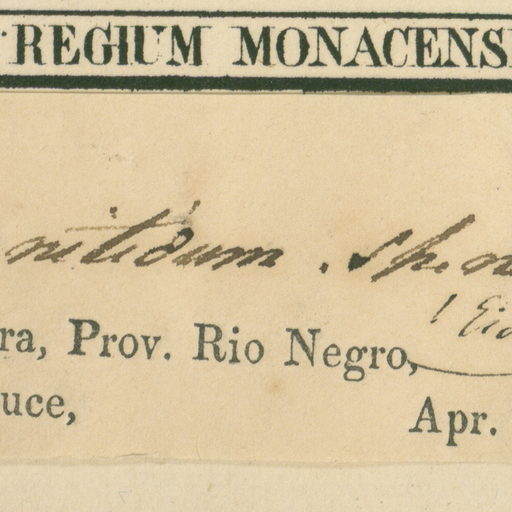 REGIUM MONACENS
nitidum. sp. n
ra, Prov. Rio Negro,
uce,
Apr.